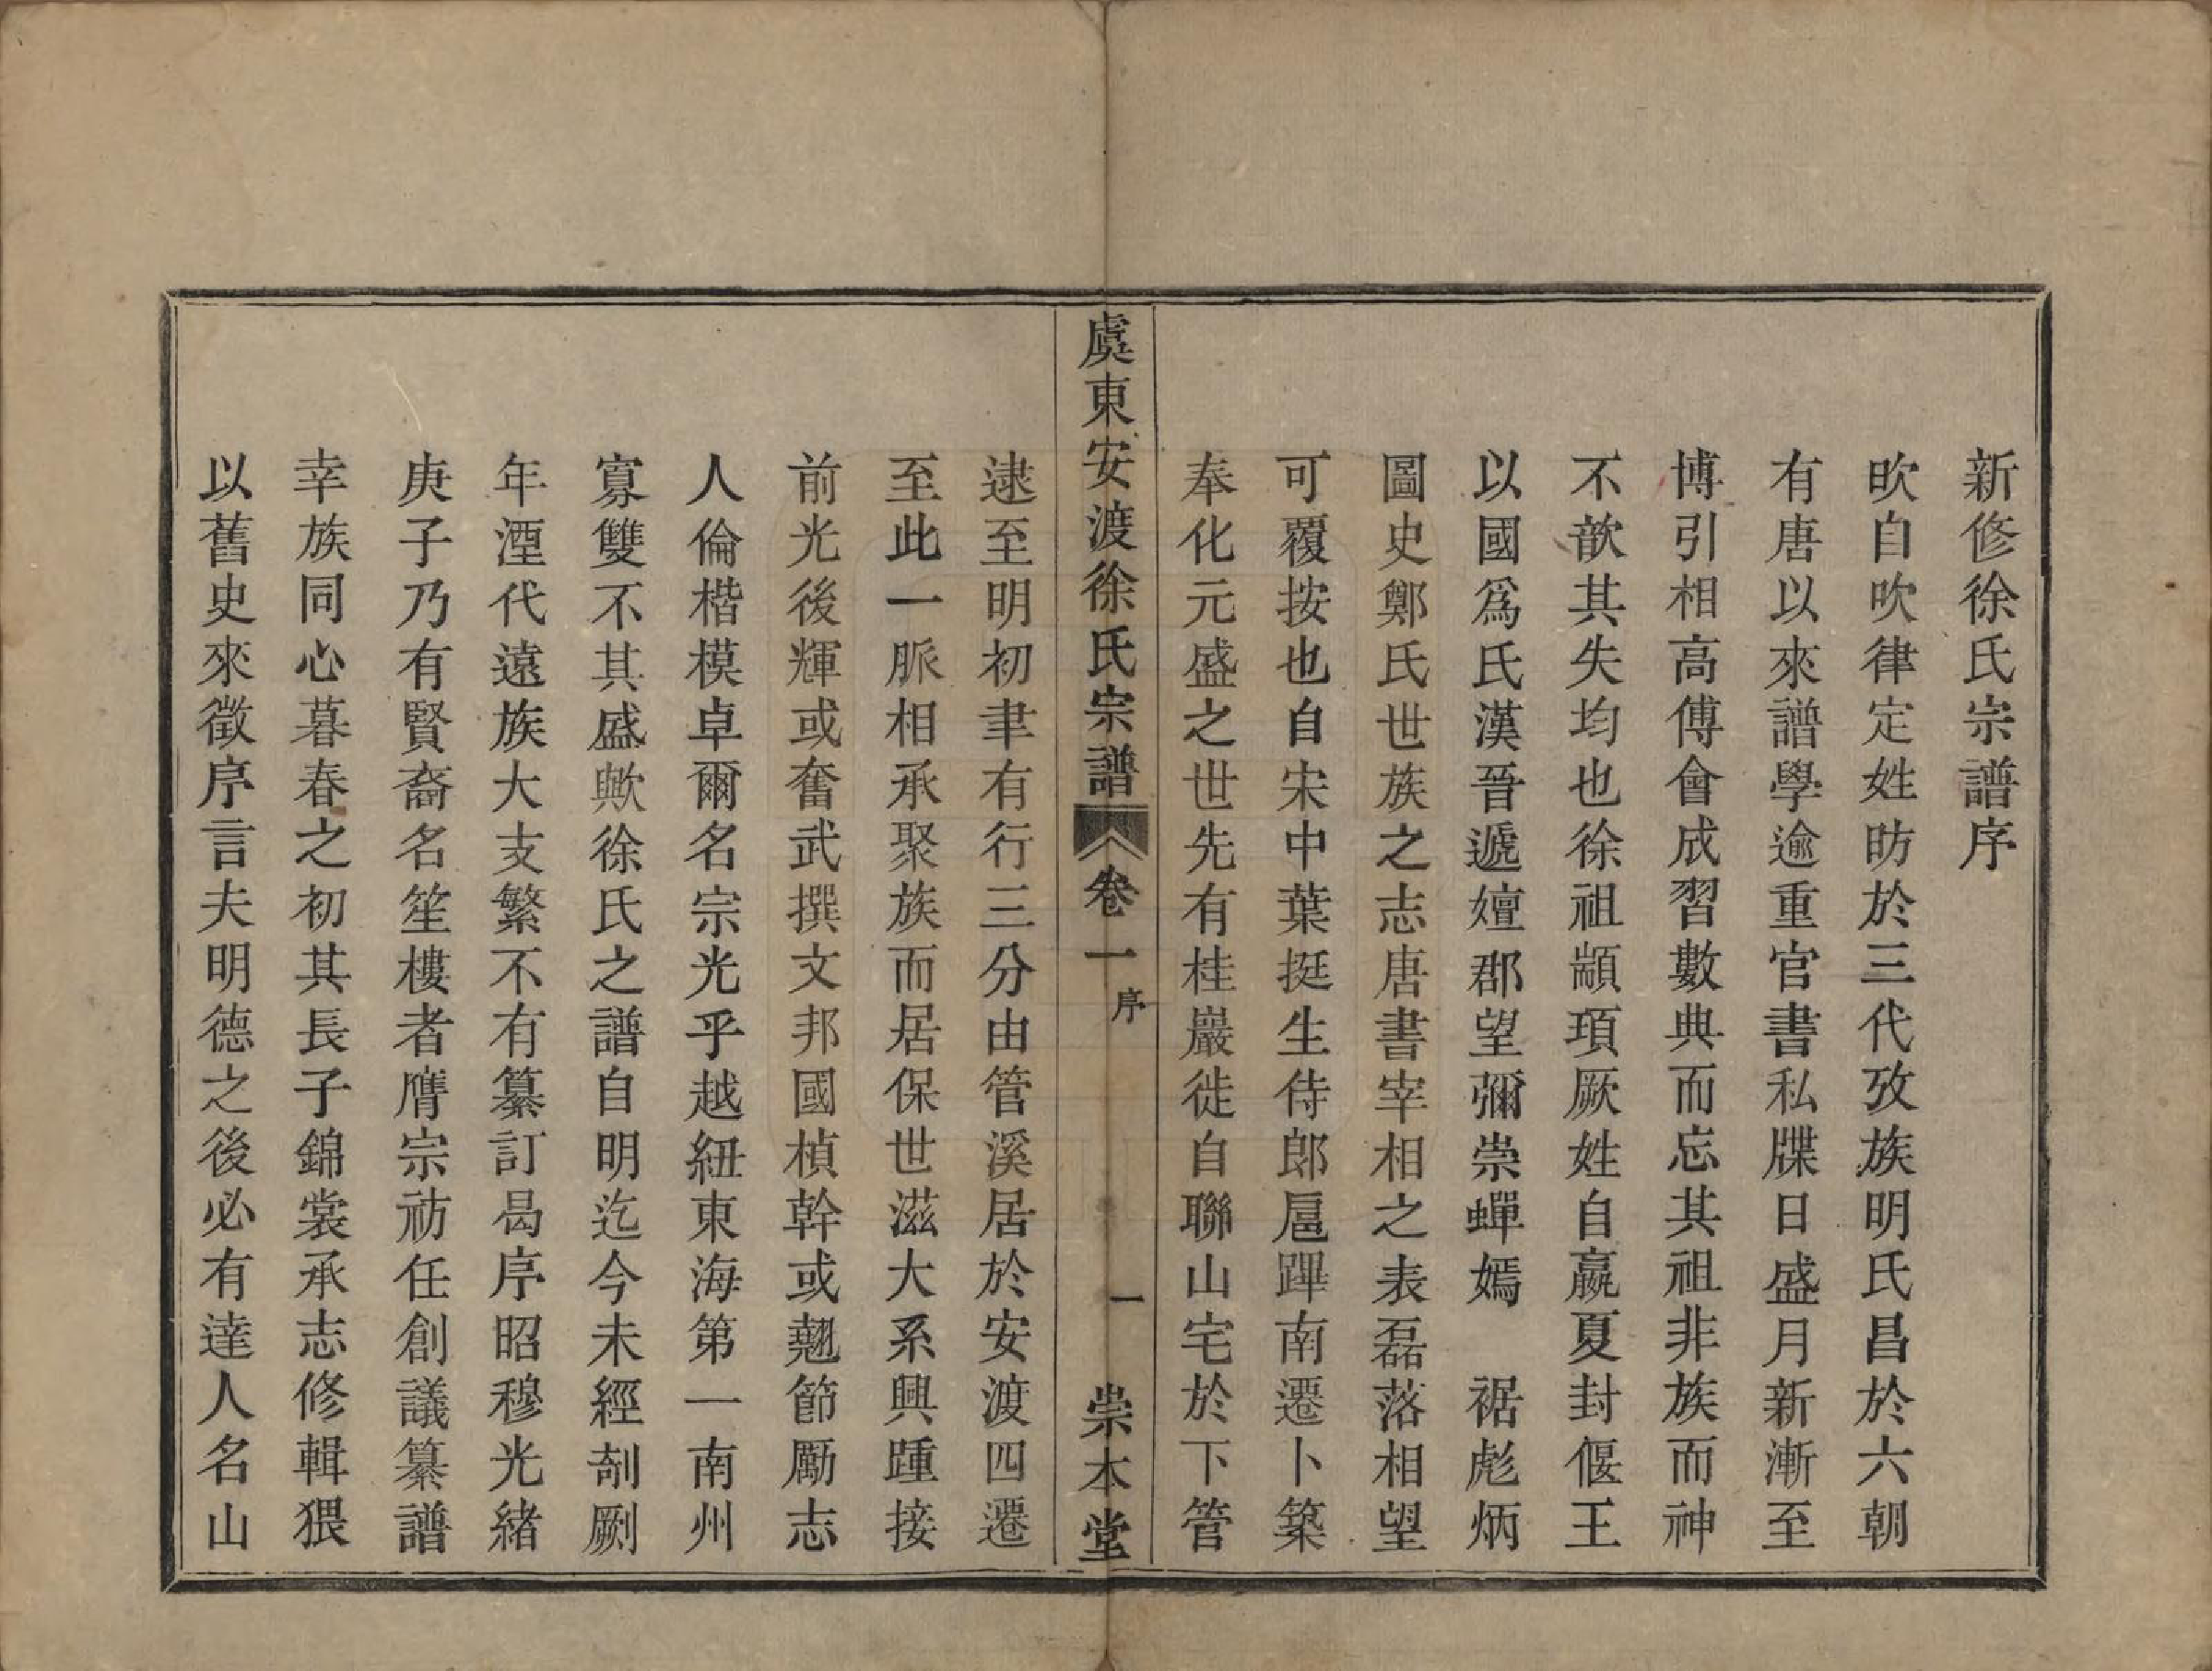 新修徐氏宗譜序
昉自吹律定姓昉於三代攷族明氏昌於六朝
有唐以來譜學逾重官書私牒日盛月新漸至
博引相高傅會成習數典而忘其祖非族而神
不歆其失均也徐祖顓頊厥姓自嬴夏封偃王
以國爲氏漢晉遞嬗郡望彌崇蟬嫣　裾彪炳
圖史鄭氏世族之志唐書宰相之表磊落相望
可覆按也自宋中葉挺生侍郎扈蹕南遷卜築
奉化元盛之世先有桂巖徙自聯山宅於下管
虞東安渡徐氏宗譜　卷一　序　一　崇本堂
逮至明初聿有行三分由管溪居於安渡四遷
至此一脈相承聚族而居保世滋大系興踵接
前光後輝或奮武撰文邦國楨幹或翹節勵志
人倫楷模卓爾名宗光乎越紐東海第一南州
寡雙不其盛歟徐氏之譜自明迄今未經剞劂
年湮代遠族大支繁不有纂訂曷序昭穆光緒
庚子乃有賢裔名笙樓者膺宗祊任創議纂譜
幸族同心暮春之初其長子錦裳承志修輯猥
以舊史來徵序言夫明德之後必有達人名山